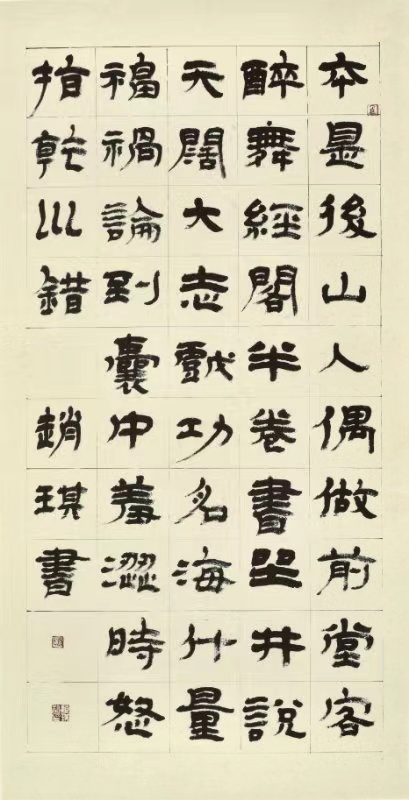 本是後山人偶做前堂客
醉舞經閣半卷書坐井說
天闊大志戲功名海斗量
福禍論到囊中羞澀時怒
指乾坤錯 趙琪書